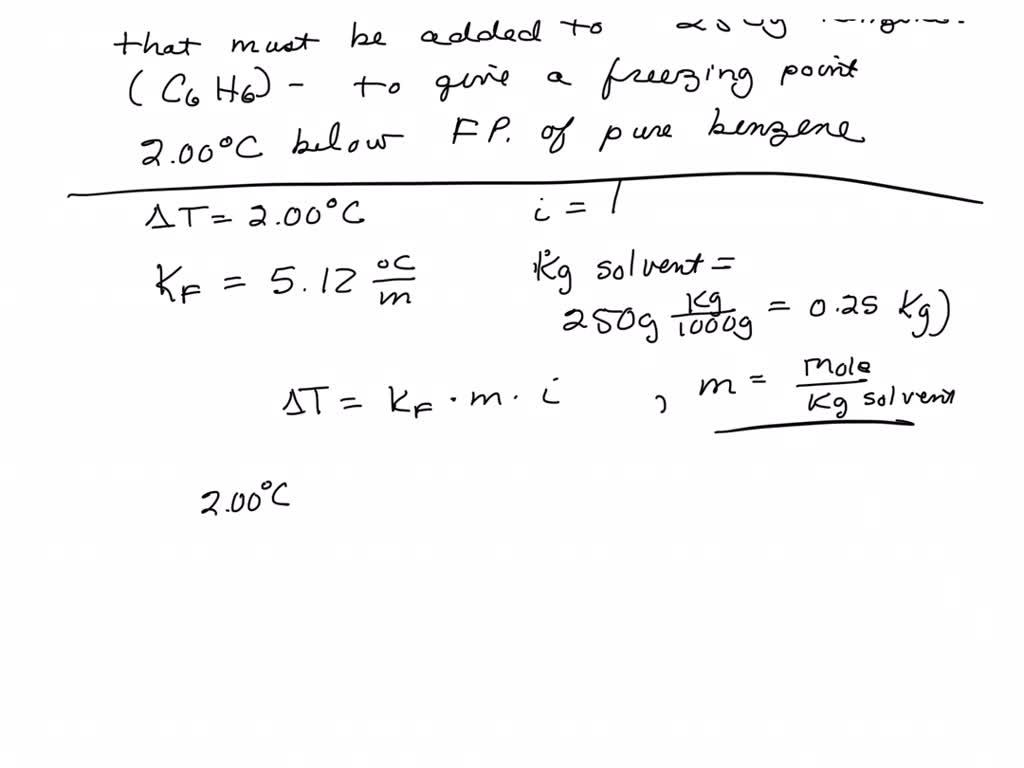 that must be added to 250g
(C6 H6) - to give a freezing point
2.00°C below FP. of pure benzene
ΔT = 2.00°C
i = 1
KF = 5.12 °C/m
Kg solvent =
250g Kg/1000g = 0.25 Kg)
ΔT = KF · m · i , m = mole/Kg solvent
2.00°C